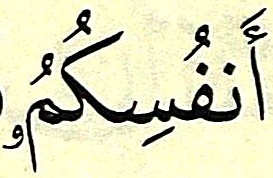 أَنفُسِكُمُ